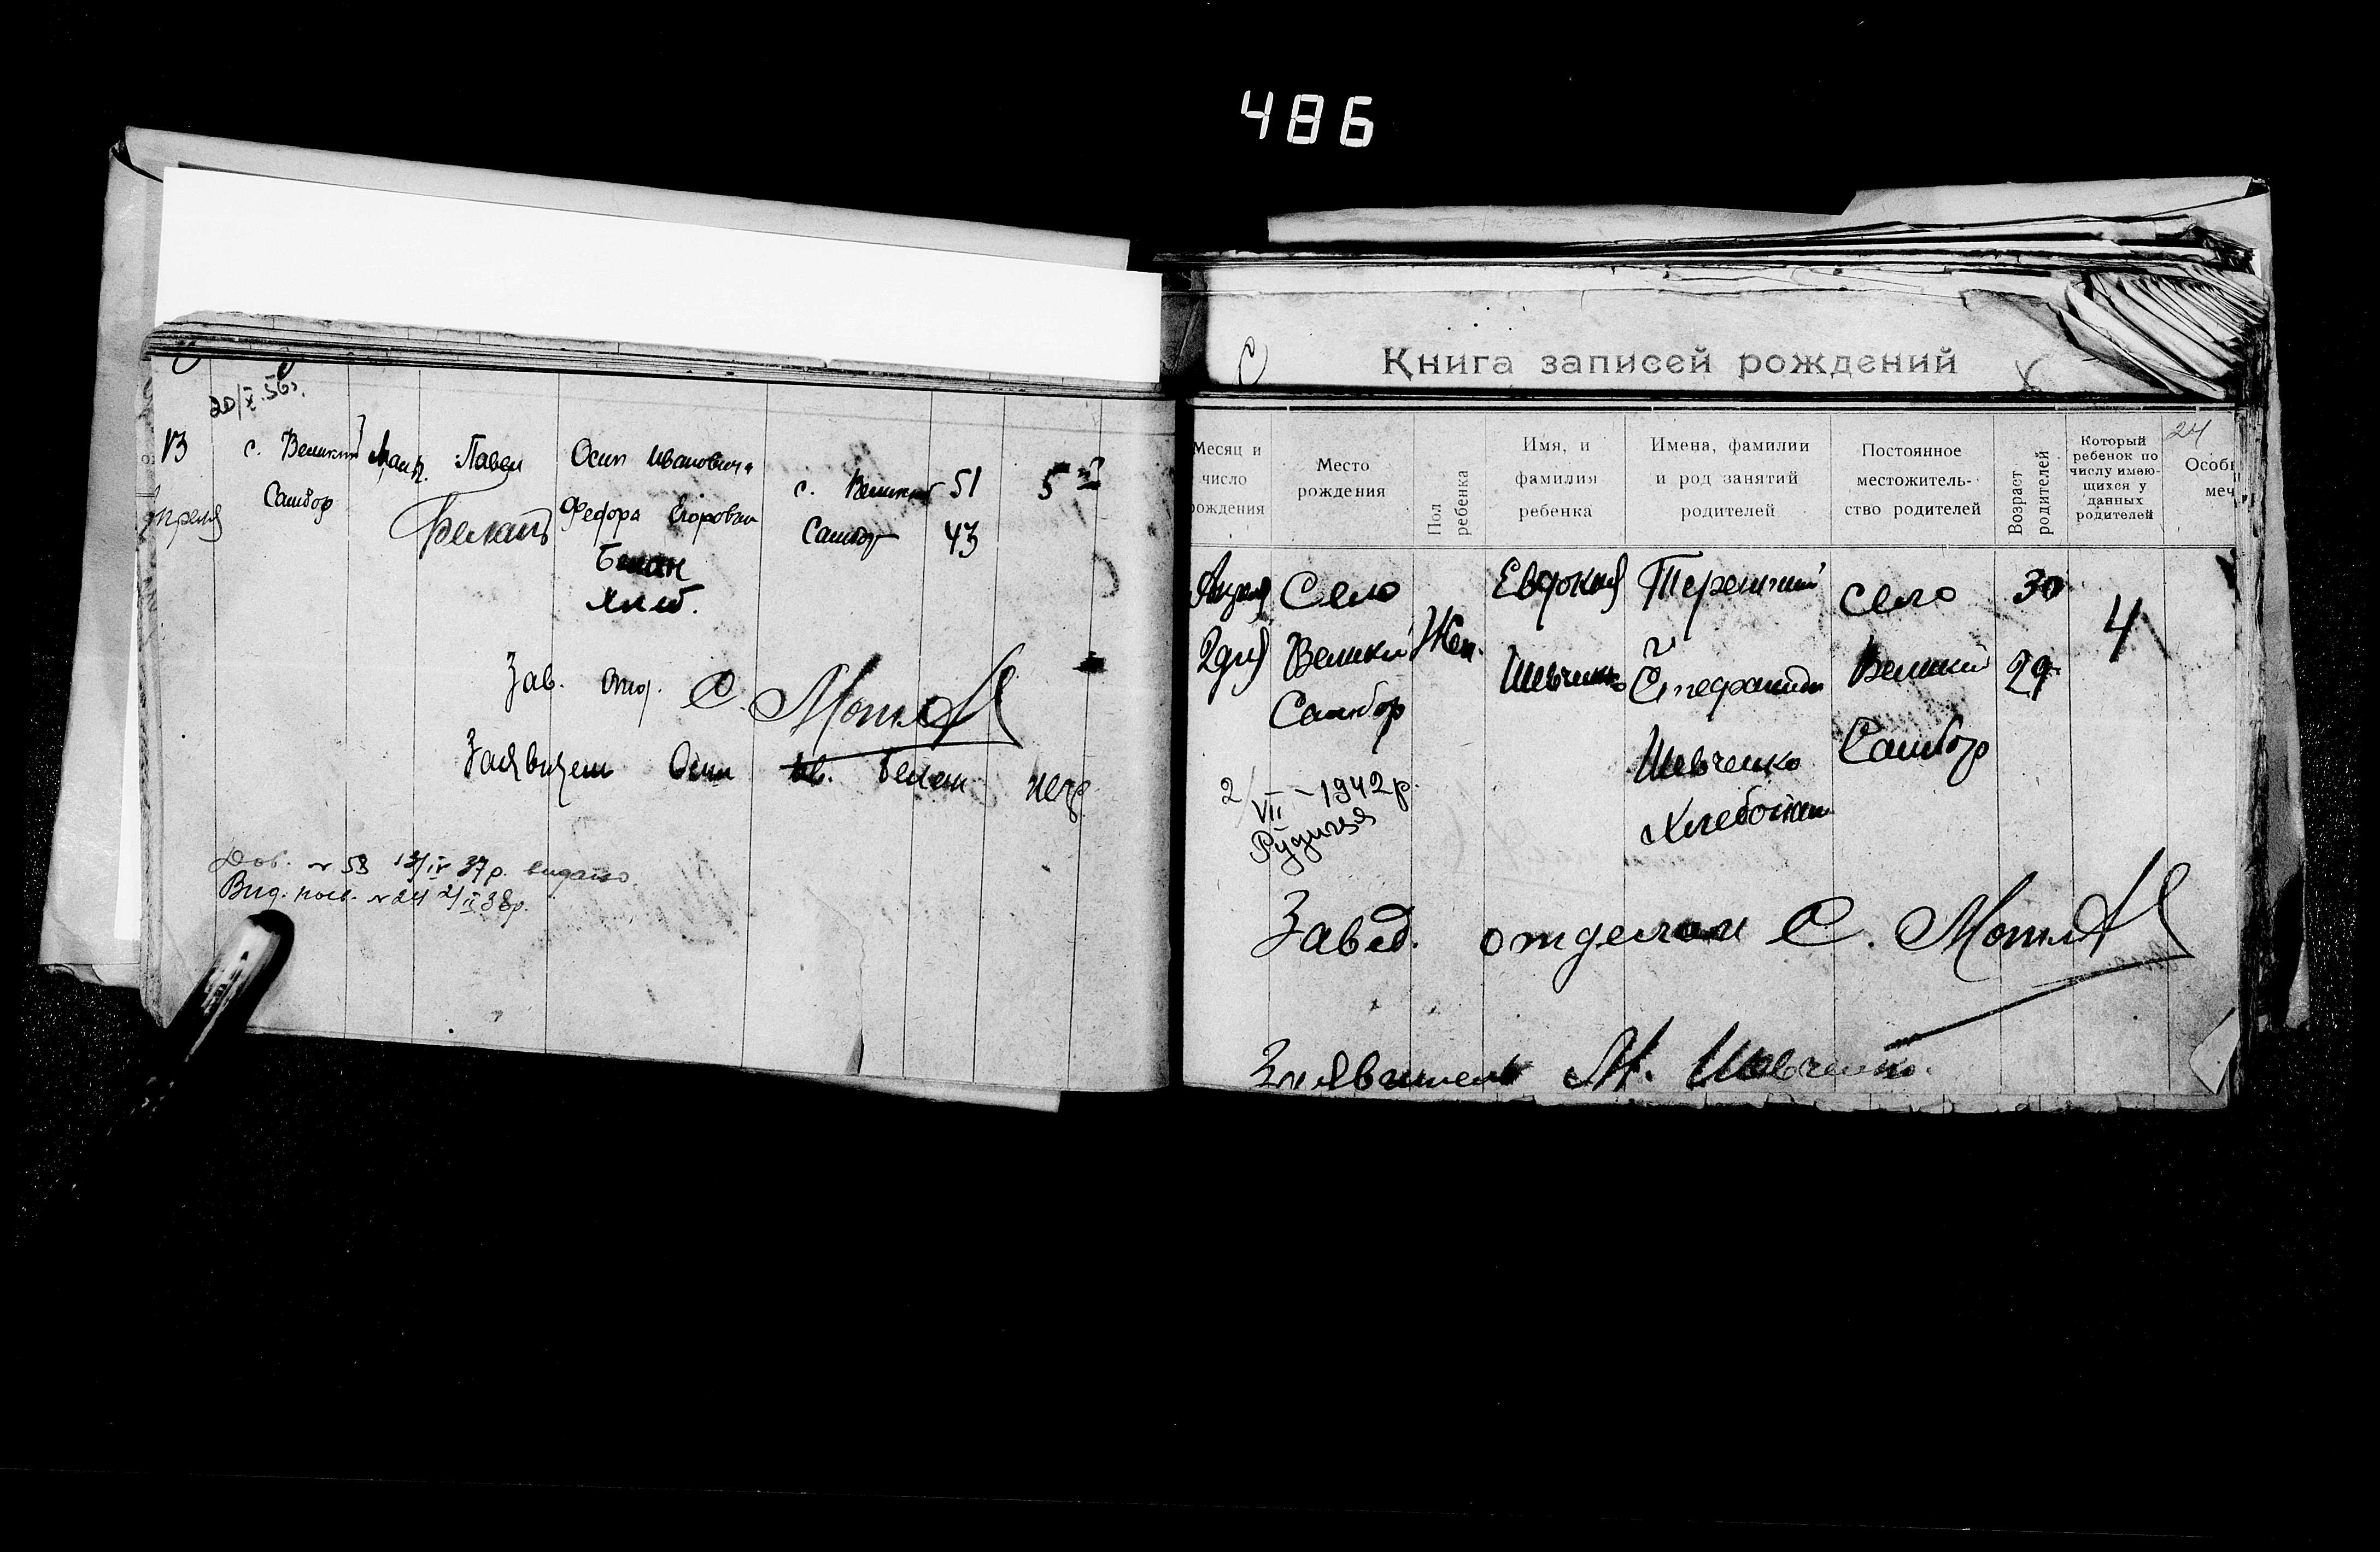 486
20/X.56г.
13
апреля
с. Великий
Самбор
Мальч.
Павел
Белан
Осип Иванович и
Федора Егоровна
Белан
хлеб.
с. Великий
Самбор
51
43
5й
Зав. отд. С.
Заявитель Осип Ив. Белан
Дов. № 58 13/IV 37р. видано
Вид. посв. № 24 2/II 38р.
Книга записей рождений
24
Месяц и
число
рождения
Место
рождения
Пол
ребенка
Имя, и
фамилия
ребенка
Имена, фамилии
и род занятий
родителей
Постоянное
местожитель-
ство родителей
Возраст
родителей
Который
ребенок по
числу имею-
щихся у
данных
родителей
Особ
меч
Апреля
2 дня
Село
Великий
Самбор
Жен.
Евдокия
Шевченко
Терентий
и
Степанида
Шевченко
Хлебопаш
Село
Великий
Самбор
30
29
4
2/VII - 1942р.
Завед. отделом С.
Заявитель М. Шевченко.